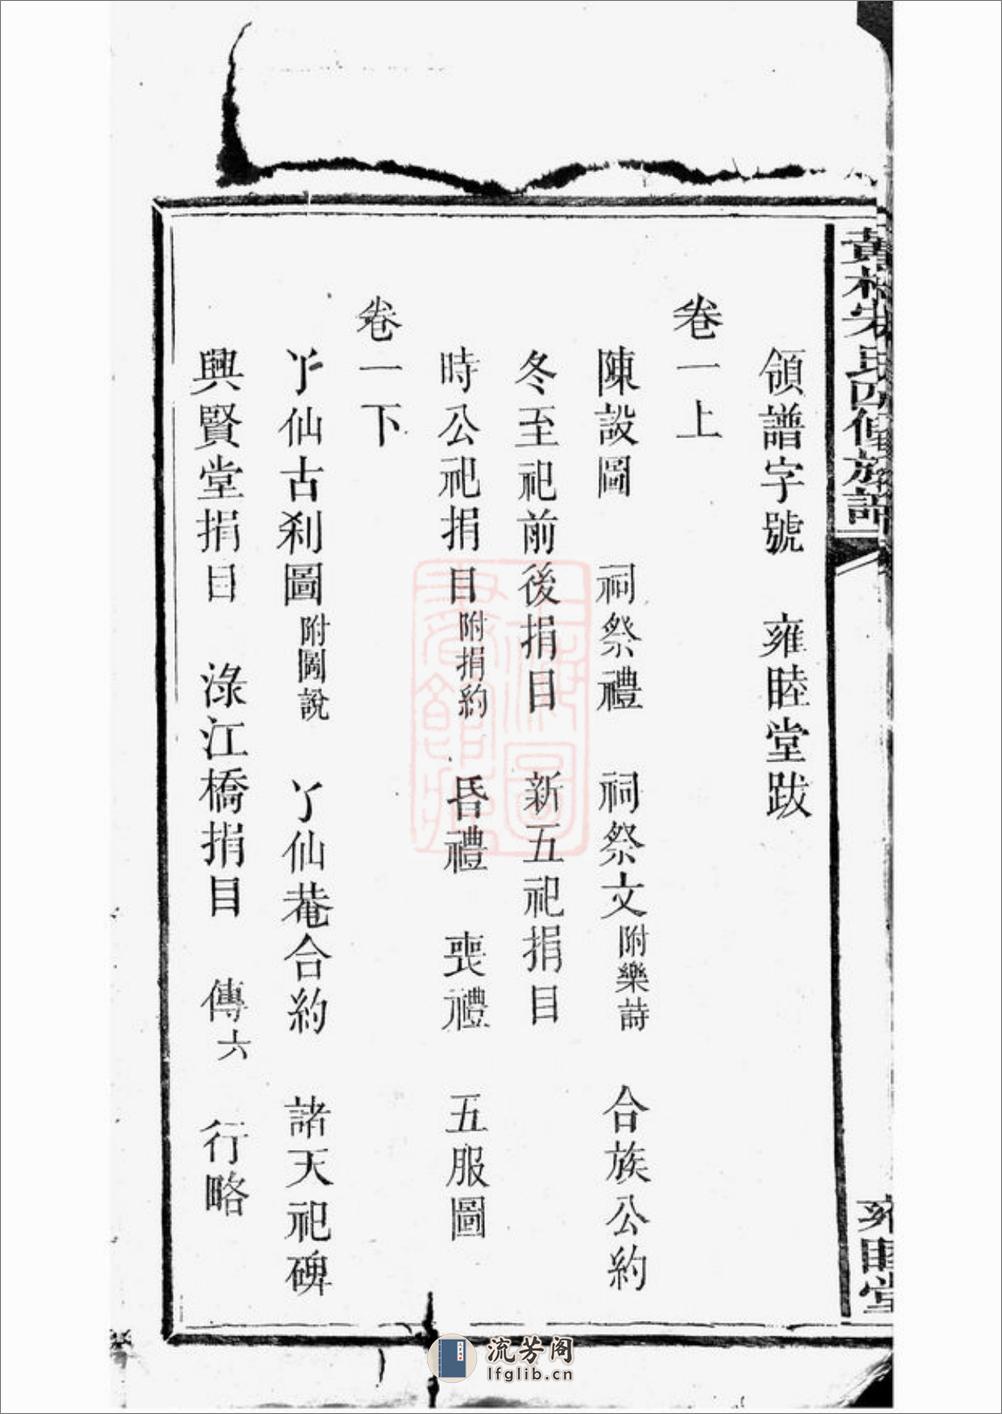 領譜字號　雍睦堂跋
卷一上
陳設圖　祠祭禮　祠祭文附樂詩　合族公約
冬至祀前後捐目　新五祀捐目
時公祀捐目附捐約　昏禮　喪禮　五服圖
卷一下
丫仙古刹圖附圖說　丫仙菴合約　諸天祀碑
興賢堂捐目　淥江橋捐目　傳六　行略
氏四修族譜
雍睦堂
上海圖書館藏
流芳阁
lfglib.cn